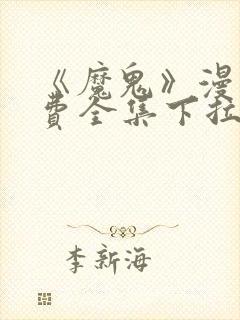 《魔鬼》漫
费全集下拉
李新海